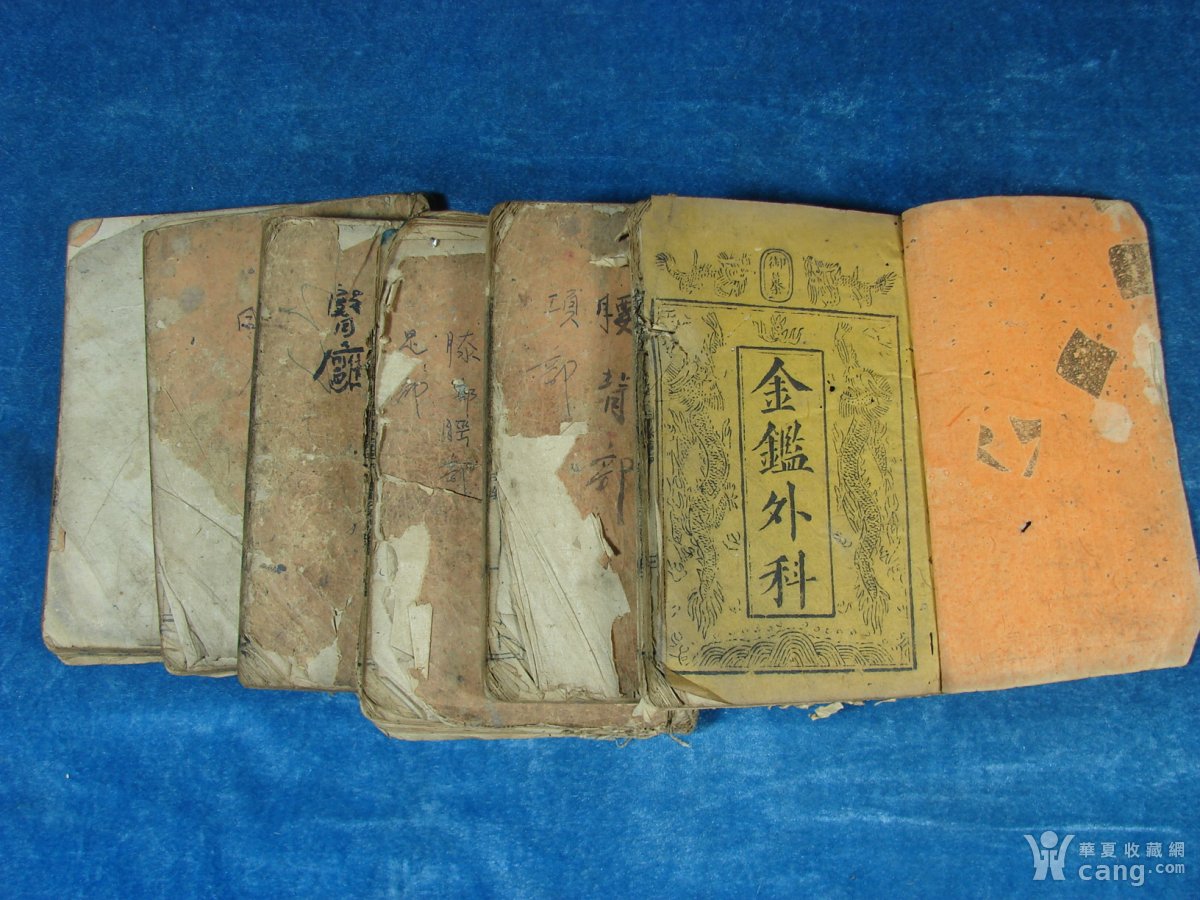 御纂
金鑑外科
腰背部
項部
膝部脛部
足部
華夏收藏網
cang.com